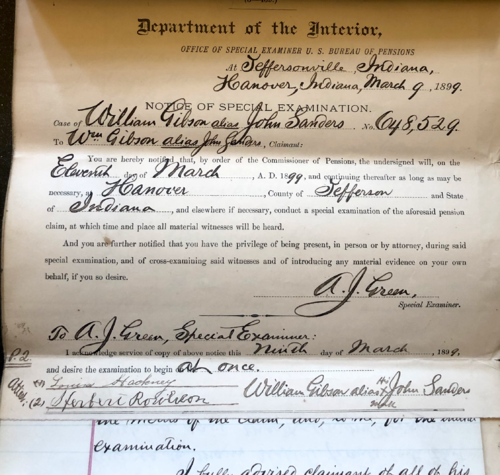 Department of the Interior,
OFFICE OF SPECIAL EXAMINER U. S. BUREAU OF PENSIONS
At Jeffersonville, Indiana,
Hanover, Indiana, March 9, 1899.
NOTICE OF SPECIAL EXAMINATION.
Case of William Gibson alias John Sanders No. 648,529.
To Wm Gibson alias John Sanders, Claimant:
You are hereby notified that, by order of the Commissioner of Pensions, the undersigned will, on the
Eleventh day of March, A. D. 1899, and continuing thereafter as long as may be
necessary, at Hanover, County of Jefferson and State
of Indiana, and elsewhere if necessary, conduct a special examination of the aforesaid pension
claim, at which time and place all material witnesses will be heard.
And you are further notified that you have the privilege of being present, in person or by attorney, during said
special examination, and of cross-examining said witnesses and of introducing any material evidence on your own
behalf, if you so desire.
A. J. Green,
Special Examiner.
To A. J. Green, Special Examiner:
I acknowledge service of copy of above notice this Ninth day of March, 1899,
and desire the examination to begin at once.
P. 2
Attest: (1) Hackney
(2)
William Gibson alias John Sanders
His
X
mark
the merits of the claim, and, to me, for the
examination.
I fully advised claimant of all of his